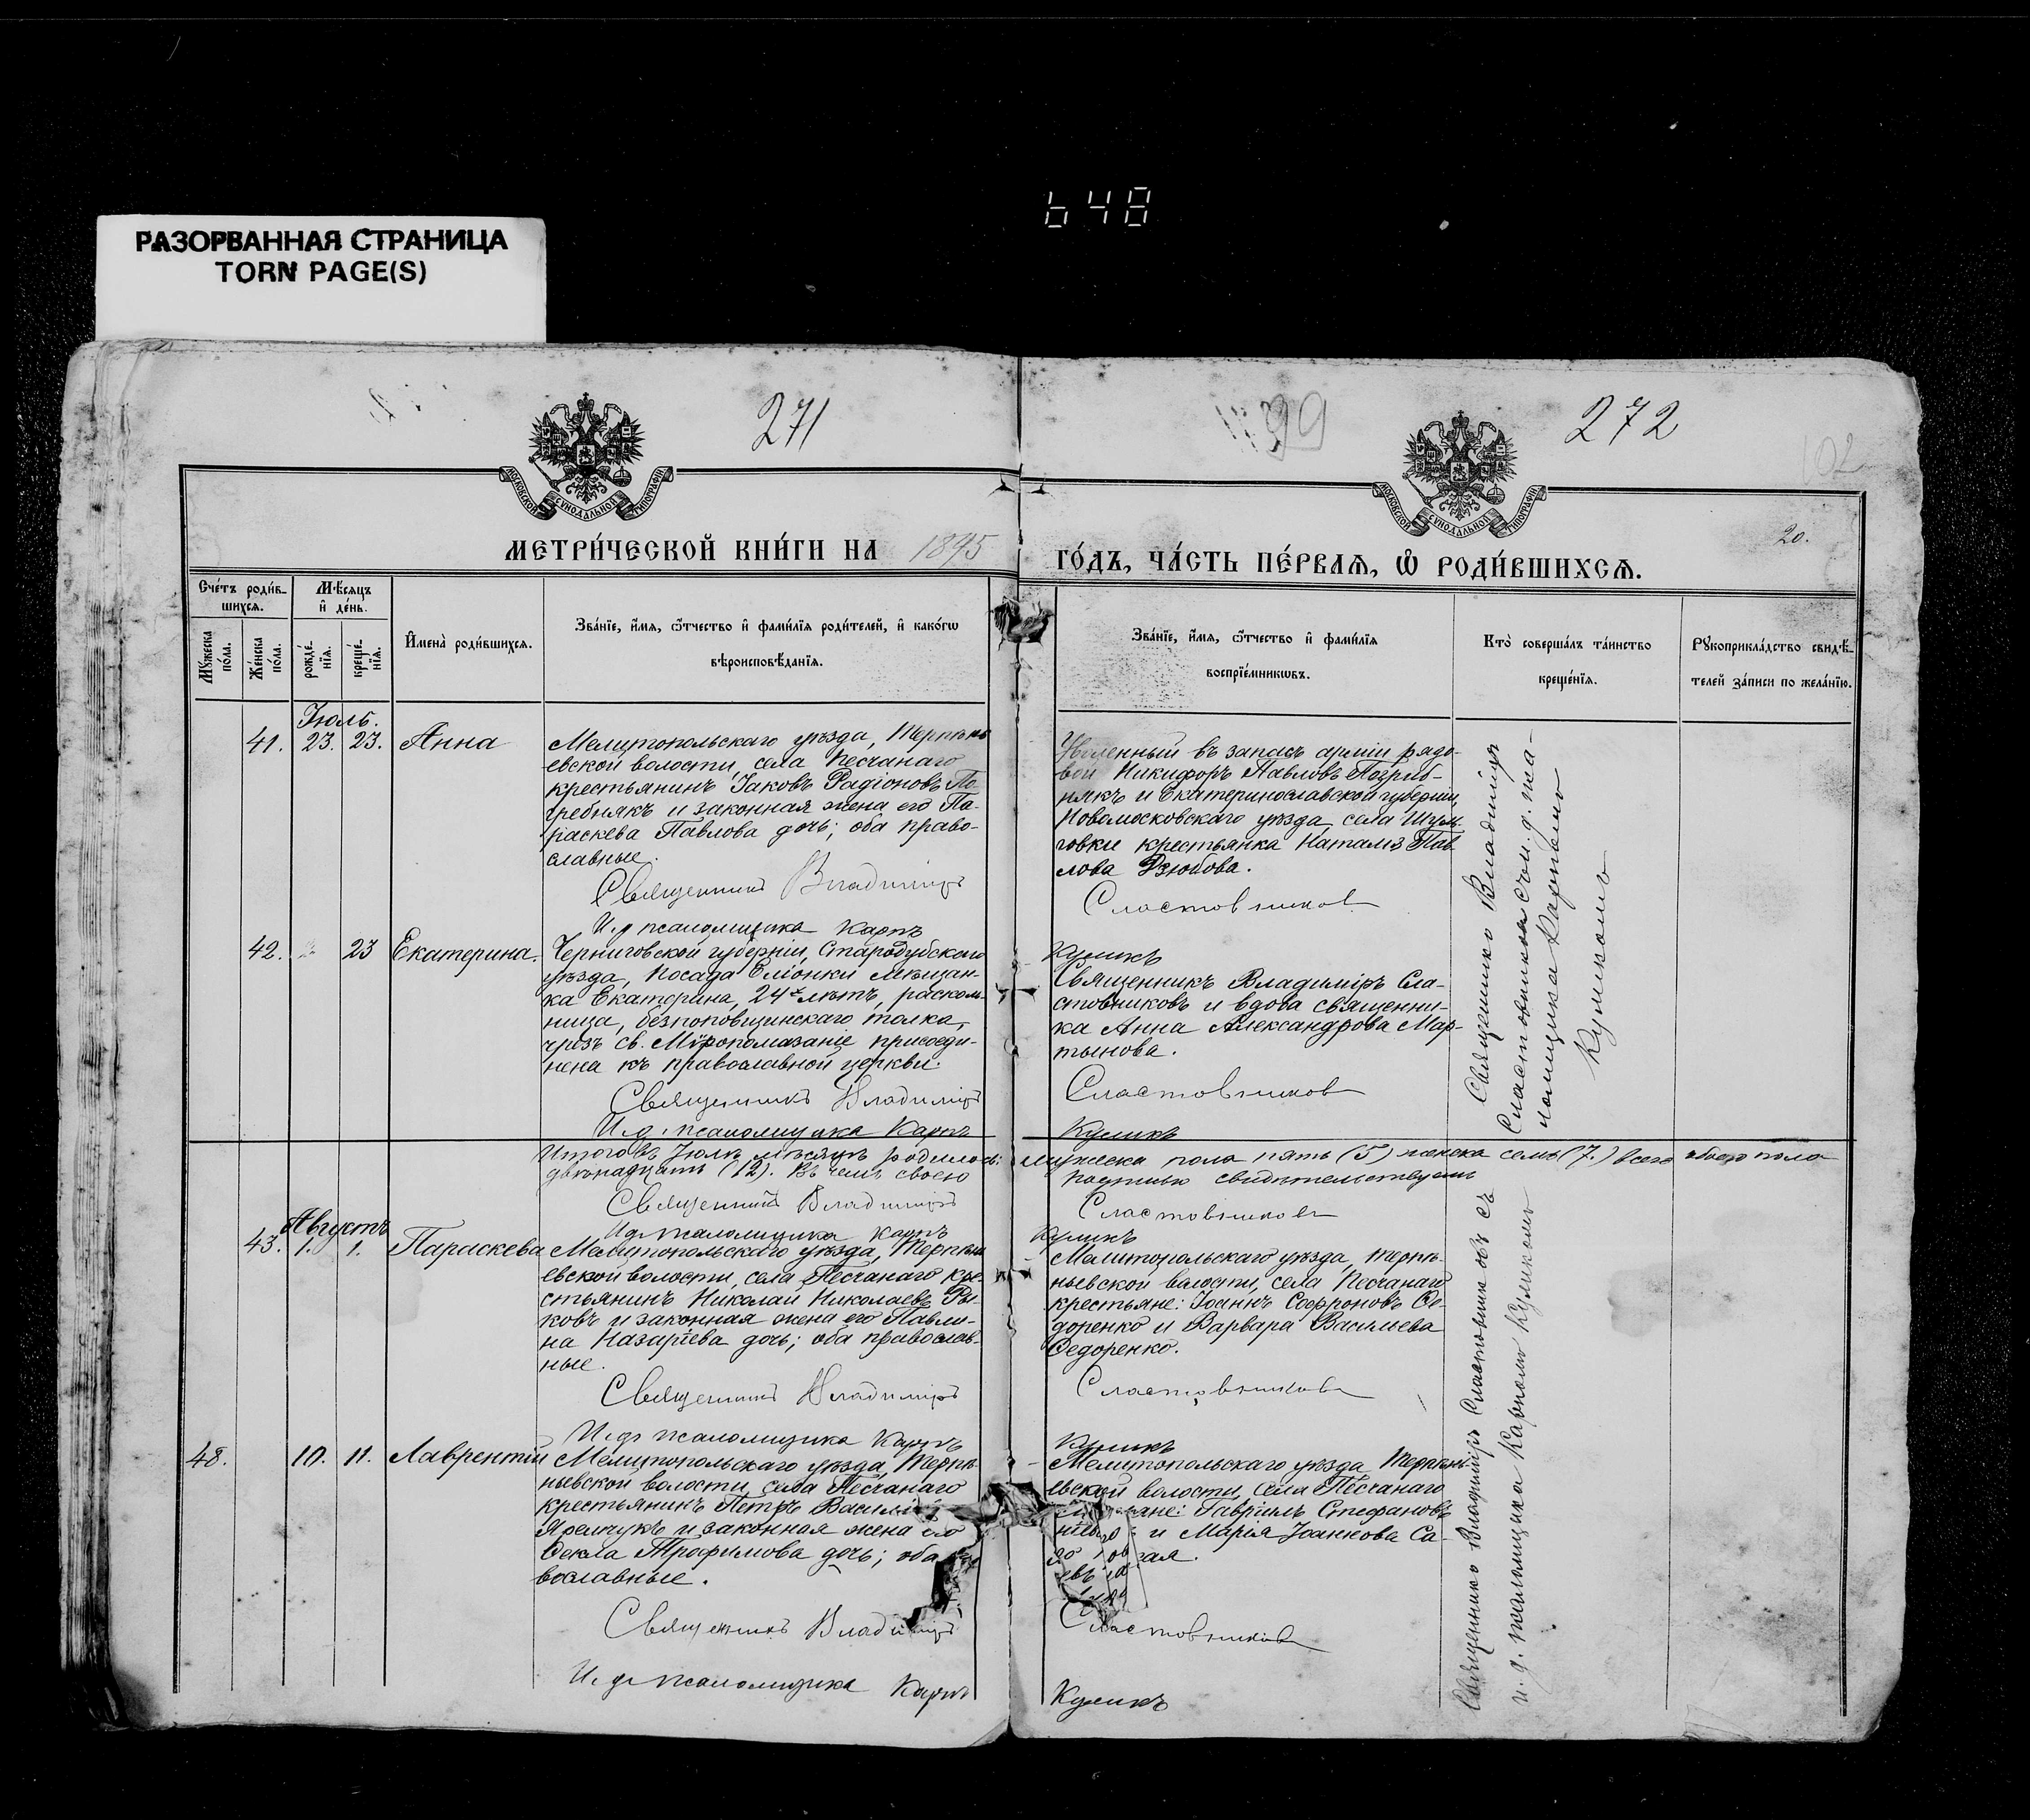 648
РАЗОРВАННАЯ СТРАНИЦА
TORN PAGE(S)
271
99
272
102
МОСКОВСКОЙ СѴНОДАЛЬНОЙ ТИПОГРАФІИ
МОСКОВСКОЙ СѴНОДАЛЬНОЙ ТИПОГРАФІИ
20.
МЕТРИ́ЧЕСКОЙ КНИ́ГИ НА 1895
ГО́ДЪ, ЧА́СТЬ ПЕ́РВАѦ, Ѡ҆ РОДИ́ВШИХСѦ.
Сче́тъ роди́в-
шихсѧ.
Мꙋ́жеска
по́ла.
Же́нска
по́ла.
Мѣ́сѧцъ
и҆ де́нь.
рожде́-
нїѧ.
креще́-
нїѧ.
И҆мена̀ роди́вшихсѧ.
Зва́нїе, и҆́мѧ, ѻ҆́тчество и҆ фами́лїѧ роди́телей, и҆ како́гѡ
вѣроисповѣ́данїѧ.
Зва́нїе, и҆́мѧ, ѻ҆́тчество и҆ фами́лїѧ
воспрїе́мникѡвъ.
Кто̀ соверша́лъ та́инство
креще́нїѧ.
Рꙋкоприкла́дство свидѣ́-
телей за́писи по жела́нїю.
Іюль.
41. 23. 23. Анна
Мелитопольскаго уѣзда, Терпѣнь
евской волости, села Песчанаго
крестьянинъ Іаковъ Радіоновъ По-
гребнякъ и законная жена его Па-
раскева Павлова дочь; оба право-
славные.
Священникъ Владиміръ
И.д псаломщика Карпъ
Уволенный въ запасъ арміи рядо-
вой Никифоръ Павловъ Погреб-
някъ и Екатеринославской губерніи,
Новомосковскаго уѣзда, села Шуль-
говки крестьянка Наталія Пав-
лова Дзюбова.
Сластовников
Куликъ
42. 23 Екатерина.
Черниговской губерніи, Стародубскаго
уѣзда, посада Еліонки мѣщан-
ка Екатерина, 24х лѣтъ, расколь-
ница, безпоповщинскаго толка,
чрезъ св. Мѵропомазаніе присоеди-
нена къ православной церкви.
Священникъ Владиміръ
И.д. псаломщика Карпъ
Священникъ Владиміръ Сла-
стовниковъ и вдова священни-
ка Анна Александрова Мар-
тынова.
Сластовников
Куликъ
Священникъ Владиміръ
Сластовниковъ съ и. д. пса-
ломщика Карпомъ
Куликомъ
Итого въ Іюлѣ мѣсяцѣ родилось: мужеска пола пять (5) женска семь (7.) всего обоего пола
двѣнадцать (12). Въ чемъ своею подписью свидѣтельствуемъ
Священникъ Владиміръ Сластовников
И.д. псаломщика Карпъ Куликъ
Августъ
43. 1. 1. Параскева
Мелитопольскаго уѣзда, Терпѣнь
евской волости, села Песчанаго кре-
стьянинъ Николай Николаевъ Ры-
ковъ и законная жена его Павли-
на Назаріева дочь; оба православ-
ные.
Священникъ Владиміръ
И.д. псаломщика Карпъ
Мелитопольскаго уѣзда, Терпѣ-
ньевской волости, села Песчанаго
крестьяне: Іоаннъ Софроновъ Ѳе-
доренко и Варвара Васильева
Ѳедоренко.
Сластовников
Куликъ
48. 10. 11. Лаврентій
Мелитопольскаго уѣзда, Терпѣ-
ньевской волости, села Песчанаго
крестьянинъ Петръ Василі
Яремчукъ и законная жена его
Ѳекла Трофимова дочь; оба
вославные.
Священникъ Владиміръ
И.д. псаломщика Карпъ
Мелитопольскаго уѣзда, Терпѣнь-
евской волости, села Песчанаго
Гавріилъ Стефановъ
и Марія Іоаннова Са-
Сластовников
Куликъ
Священникъ Владиміръ Сластовниковъ съ
и. д. псаломщика Карпомъ Куликомъ